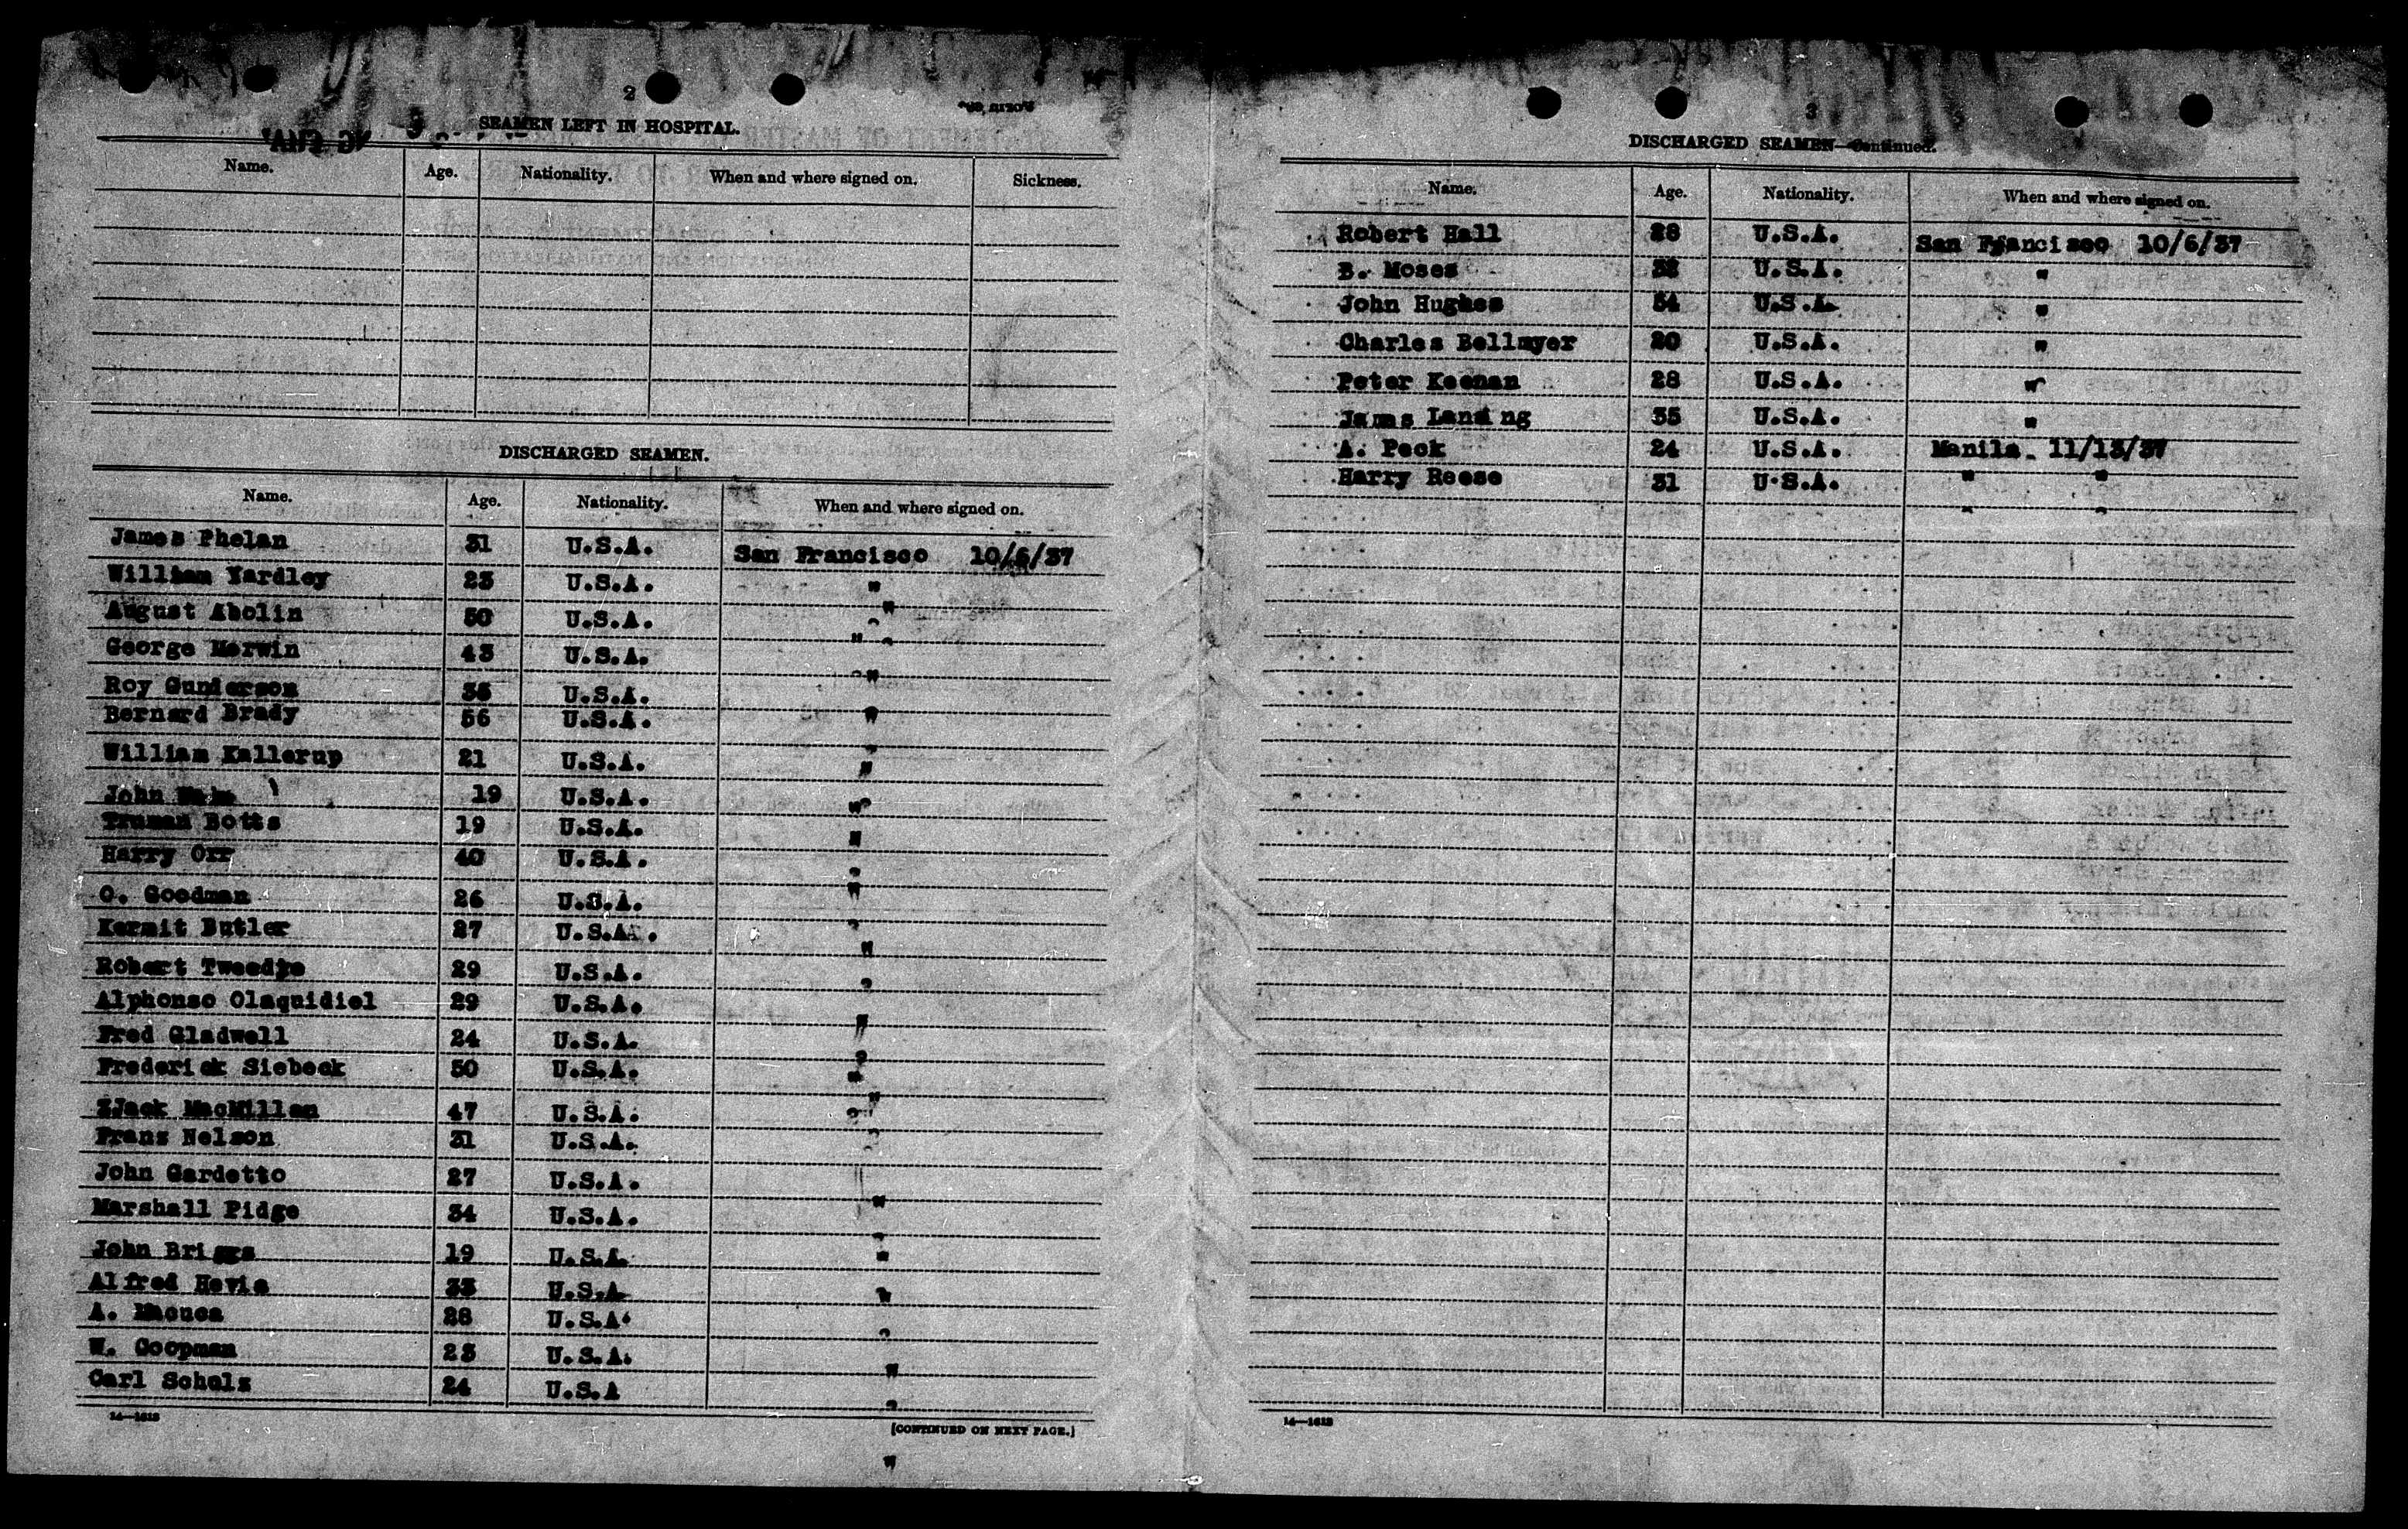 2
SEAMEN LEFT IN HOSPITAL.
Name. Age. Nationality. When and where signed on. Sickness.
DISCHARGED SEAMEN.
Name. Age. Nationality. When and where signed on.
James Phelan 31 U.S.A. San Francisco 10/6/37
William Yardley 23 U.S.A. "
August Abolin 50 U.S.A. "
George Merwin 43 U.S.A. "
Roy Gunderson U.S.A. "
Bernard Brady 56 U.S.A. "
William Kallerup 21 U.S.A. "
John 19 U.S.A. "
Truman Botts 19 U.S.A. "
Harry Orr 40 U.S.A. "
O. Goodman 26 U.S.A. "
Kermit Butler 27 U.S.A. "
Robert Tweedye 29 U.S.A. "
Alphonso Olaquidiel 29 U.S.A. "
Fred Gladwell 24 U.S.A. "
Frederick Siebeck 50 U.S.A. "
ZJack MacMillan 47 U.S.A. "
Frans Nelson 31 U.S.A.
John Gardetto 27 U.S.A. "
Marshall Pidge 34 U.S.A. "
John Briggs 19 U.S.A. "
Alfred Hevia 33 U.S.A. "
A. 28 U.S.A. "
W. Coopman 23 U.S.A. "
Carl Scholz 24 U.S.A "
14—1613
[CONTINUED ON NEXT PAGE.]
"
3
DISCHARGED SEAMEN—Continued.
Name. Age. Nationality. When and where signed on.
Robert Hall 28 U.S.A. San Francisco 10/6/37
B. Moses U.S.A. "
John Hughes 34 U.S.A. "
Charles Bellmyer 20 U.S.A. "
Peter Keenan 28 U.S.A. "
James 35 U.S.A. "
A. Peck 24 U.S.A. Manila 11/13/37
Harry Reese 31 U.S.A. " "
14—1613